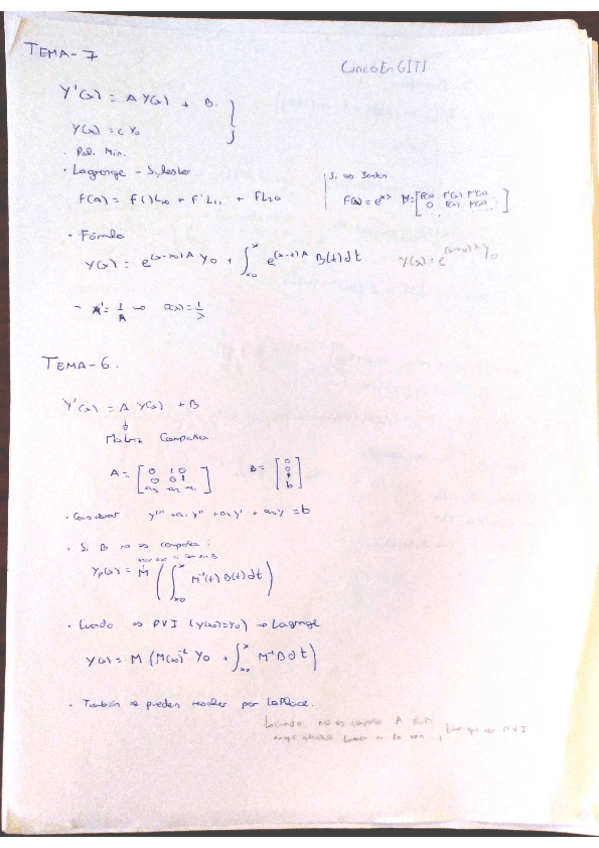 TEMA-7
CincoEnGITI
Y'(x) = A Y(x) + B.
Y(x) = c Y0
- Pol. Min.
· Lagrange - Sylvester
F(A) = F( )L10 + F'L11 + FL20
Si es Jordan
F(x) = e^x M=[F(x) F'(x) F''(x)
0 F(x) F'(x)]
· Fórmula
Y(x) = e^(x-x0)A Y0 + ∫x0^x e^(x-t)A B(t)dt Y(x) = e^(x-x0)A Y0
- A^-1 = 1/A → F(x) = 1/x
TEMA-6.
Y'(x) = A Y(x) + B
↓
Matriz Compaña
A = [0 1 0
0 0 1
] B = [0
0
b]
· Considerar y''' + a1 y'' + a2 y' + a3 y = b
· Si B no es compaña:
Yp(x) = M (∫x0^x M^-1(t) B(t)dt)
· Cuando es PVI (Y(x0)=Y0) → Lagrange
Y(x) = M (M(x0)^-1 Y0 + ∫x0^x M^-1 B dt)
· También se pueden resolver por LaPlace.
Cuando no es compaña A
que ser PVI